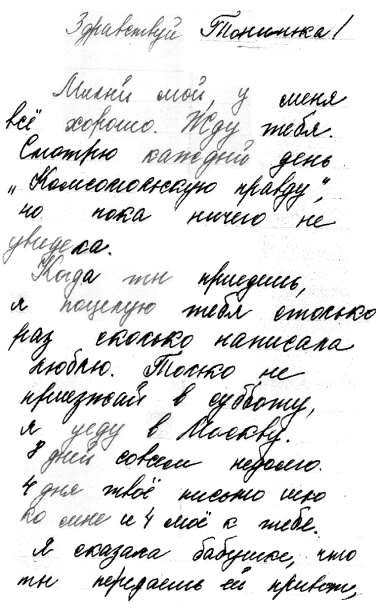 Здравствуй Тонинка!
Милый мой, у меня
всё хорошо. Жду тебя.
Смотрю каждый день
„Комсомольскую правду",
но пока ничего не
увидела.
Когда ты приедешь,
я поцелую тебя столько
раз сколько написала
люблю. Только не
приезжай в субботу,
я уеду в Москву.
8 дней совсем недолго.
4 дня твоё письмо шло
ко мне и 4 моё к тебе.
Я сказала бабушке, что
ты передаешь ей привет,